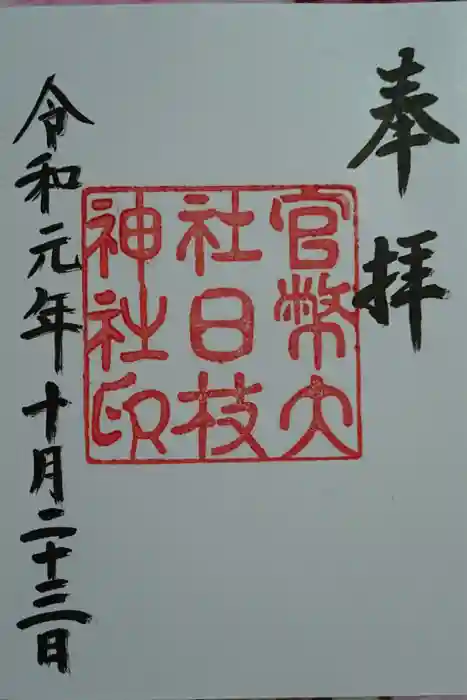 奉拝
官幣大
社日枝
神社印
令和元年十月二十三日